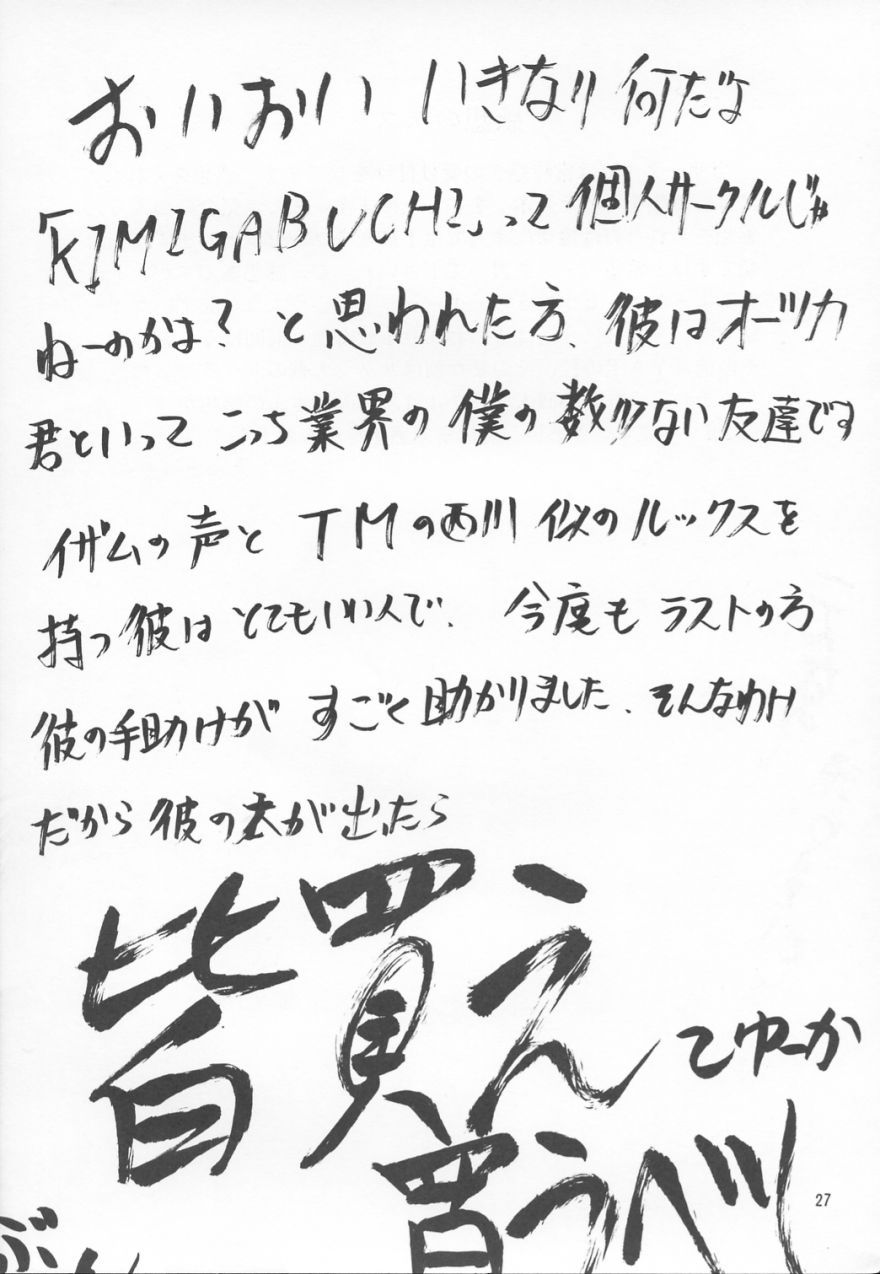 おいおい いきなり 何だよ
「KIMIGABUCHI」って個人サークルじゃ
ねーのかよ? と思われた方、彼はオーツカ
君といって こっち業界の僕の数少ない友達です
イザムの声と TMの西川似のルックスを
持つ彼は とてもいい人で、今度もラストの方
彼の手助けが すごく助かりました、そんなわけ
だから彼の本が出たら
皆買え
てゆーか
買うべし
27
ぶん